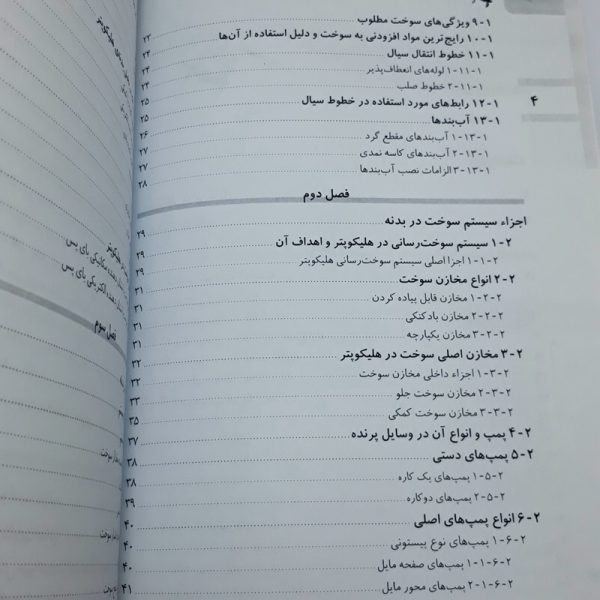 ۴
۱-۹ ویژگی‌های سوخت مطلوب
۱-۱۰ رایج‌ترین مواد افزودنی به سوخت و دلیل استفاده از آن‌ها ۲۳
۱-۱۱ خطوط انتقال سیال ۲۴
۱-۱۱-۱ لوله‌های انعطاف‌پذیر ۲۴
۱-۱۱-۲ خطوط صلب ۲۴
۱-۱۲ رابط‌های مورد استفاده در خطوط سیال ۲۵
۱-۱۳ آب‌بندها ۲۵
۱-۱۳-۱ آب‌بندهای مقطع گرد ۲۶
۱-۱۳-۲ آب‌بندهای کاسه نمدی ۲۷
۱-۱۳-۳ الزامات نصب آب‌بندها ۲۷
۲۸
فصل دوم
اجزاء سیستم سوخت در بدنه ۲۹
۲-۱ سیستم سوخت‌رسانی در هلیکوپتر و اهداف آن ۲۹
۲-۱-۱ اجزا اصلی سیستم سوخت‌رسانی هلیکوپتر ۲۹
۲-۲ انواع مخازن سوخت ۳۱
۲-۲-۱ مخازن قابل پیاده کردن ۳۱
۲-۲-۲ مخازن بادکنکی ۳۱
۲-۲-۳ مخازن یکپارچه ۳۱
۲-۳ مخازن اصلی سوخت در هلیکوپتر ۳۲
۲-۳-۱ اجزاء داخلی مخازن سوخت ۳۲
۲-۳-۲ مخازن سوخت جلو ۳۳
۲-۳-۳ مخازن سوخت کمکی ۳۵
۲-۴ پمپ و انواع آن در وسایل پرنده ۳۷
۲-۵ پمپ‌های دستی ۳۸
۲-۵-۱ پمپ‌های یک کاره ۳۸
۲-۵-۲ پمپ‌های دوکاره ۳۹
۲-۶ انواع پمپ‌های اصلی ۴۰
۲-۶-۱ پمپ‌های نوع پیستونی ۴۰
۲-۶-۱-۱ پمپ‌های صفحه مایل ۴۰
۲-۶-۱-۲ پمپ‌های محور مایل ۴۱
مکانیکی بای پس
الکتریکی بای پس
فصل سوم